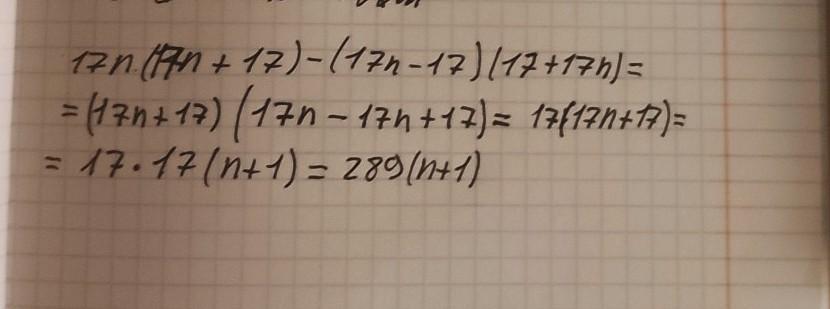 17n(17n + 17) - (17n - 17)(17 + 17n) =
= (17n + 17) (17n - 17n + 17) = 17(17n + 17) =
= 17 · 17(n+1) = 289(n+1)